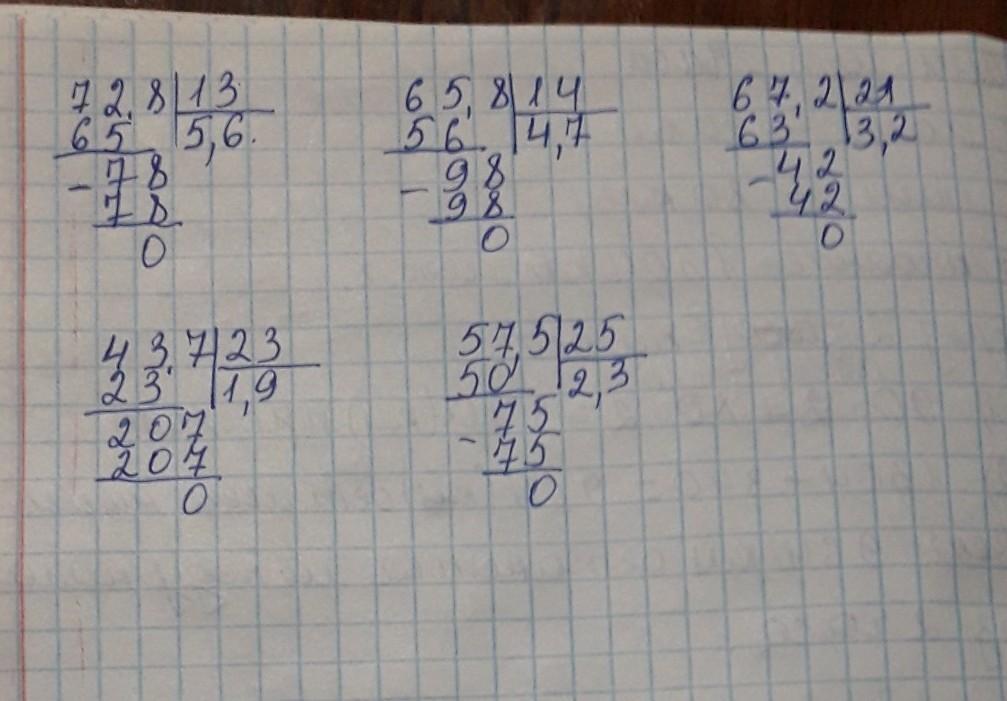 72,8 13
65 5,6.
- 78
78
0
65,8 14
56 4,7
- 98
98
0
67,2 21
63 3,2
- 42
42
0
43,7 23
23 1,9
207
207
0
57,5 25
50 2,3
- 75
75
0